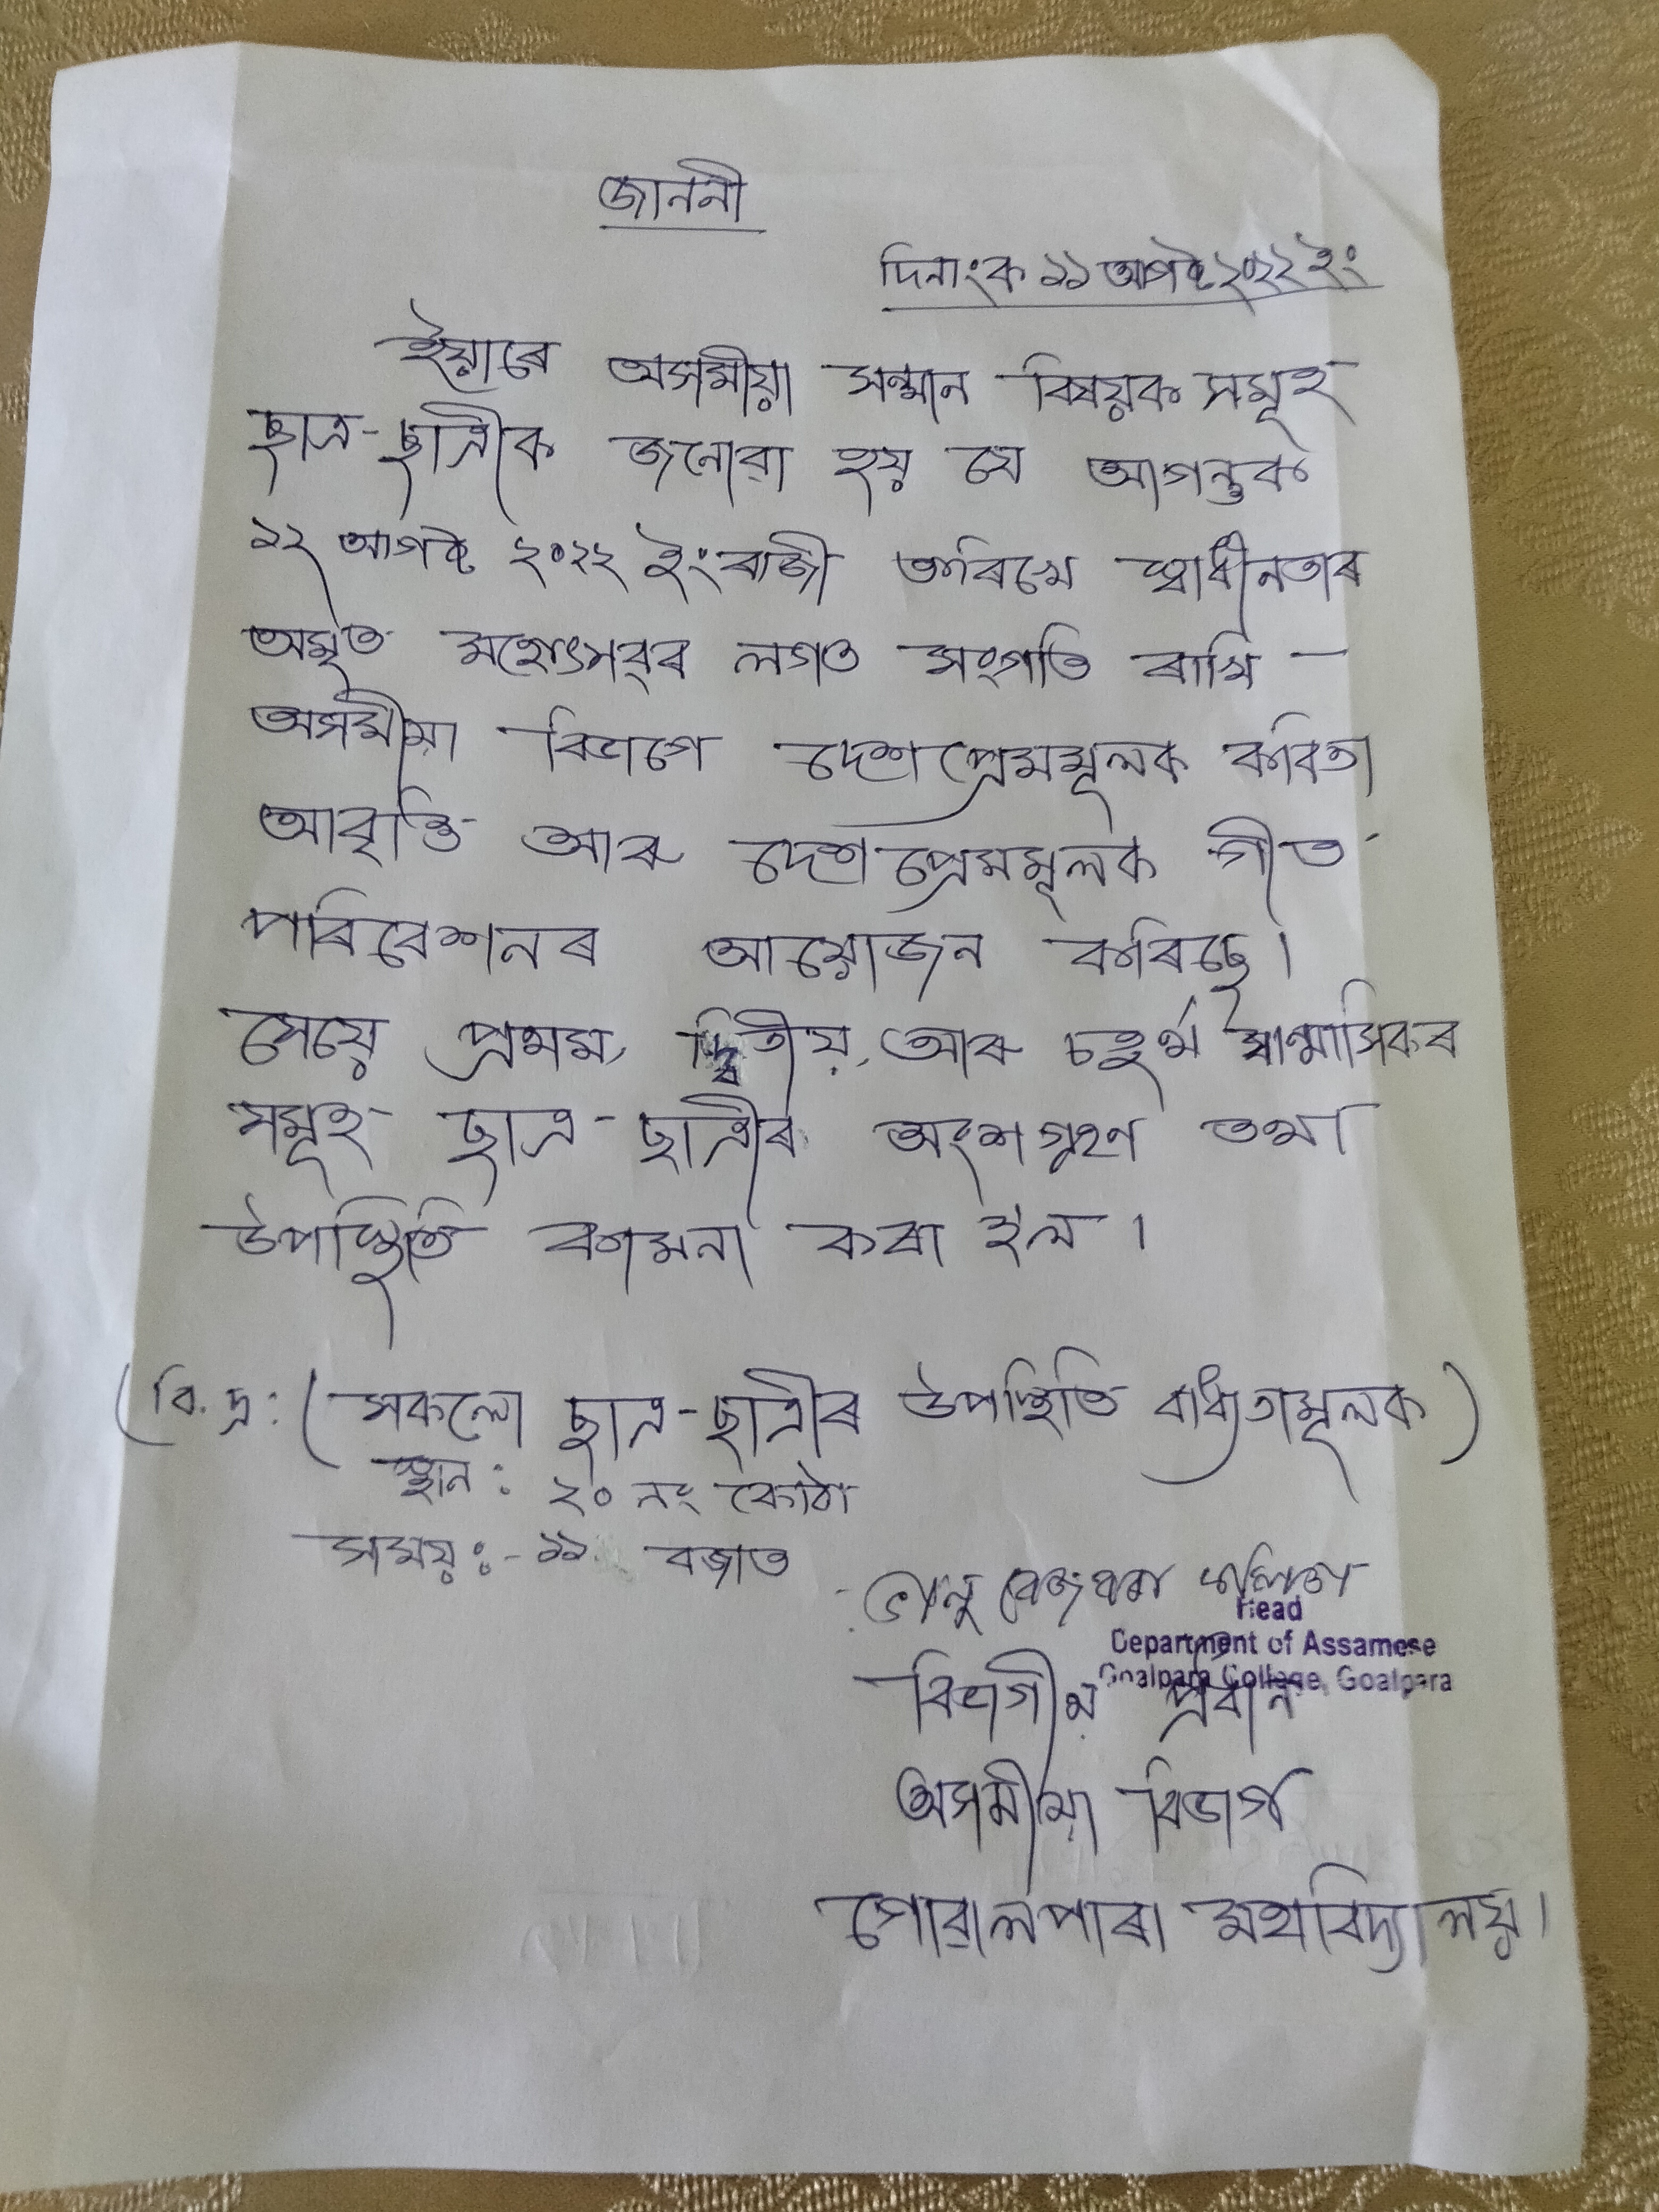 জাননী
দিনাংক ১১ আগষ্ট ২০২২ ইং
ইয়াৰে অসমীয়া সন্মান বিষয়ক সমূহ
ছাত্ৰ-ছাত্ৰীক জনোৱা হয় যে আগন্তুক
১২ আগষ্ট ২০২২ ইংৰাজী তাৰিখে স্বাধীনতাৰ
অমৃত মহোৎসৱৰ লগত সংগতি ৰাখি -
অসমীয়া বিভাগে দেশপ্ৰেমমূলক কবিতা
আবৃত্তি আৰু দেশপ্ৰেমমূলক গীত
পৰিবেশনৰ আয়োজন কৰিছে।
সেয়ে প্ৰথম, দ্বিতীয়, আৰু চতুৰ্থ ষান্মাসিকৰ
সমূহ ছাত্ৰ-ছাত্ৰীৰ অংশগ্ৰহণ তথা
উপস্থিতি কামনা কৰা হ'ল।
(বি. দ্ৰ: (সকলো ছাত্ৰ-ছাত্ৰীৰ উপস্থিতি বাধ্যতামূলক)
স্থান: ২০ নং কোঠা
সময়ঃ- ১১ বজাত
Head
Department of Assamese
Goalpara College, Goalpara
বিভাগীয় প্ৰধান
অসমীয়া বিভাগ
গোৱালপাৰা মহাবিদ্যালয়।